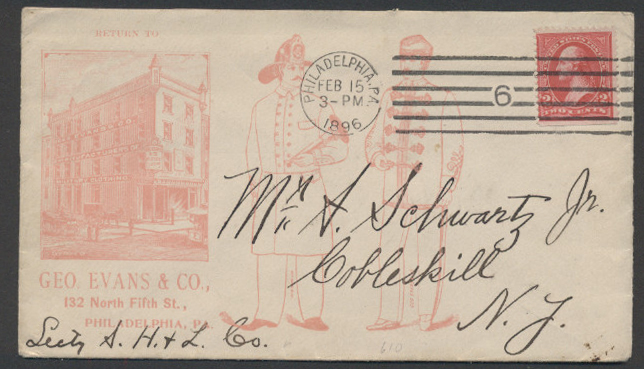 RETURN TO
GEO. EVANS & CO.,
132 North Fifth St.,
PHILADELPHIA, PA.
PHILADELPHIA, PA.
FEB 15
3-PM
1896
6
2 2
TWO CENTS
Mr. A. Schwartz Jr.
Cobleskill
N. Y.
Secty A. H. & L. Co.
610